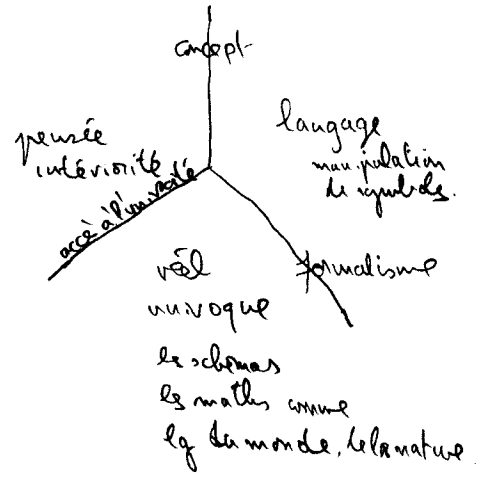 concept
pensée
intériorité
accès à l'univocité
langage
manipulation
de symboles.
réel
univoque
formalisme
les schémas
les maths comme
lg du monde, de la nature